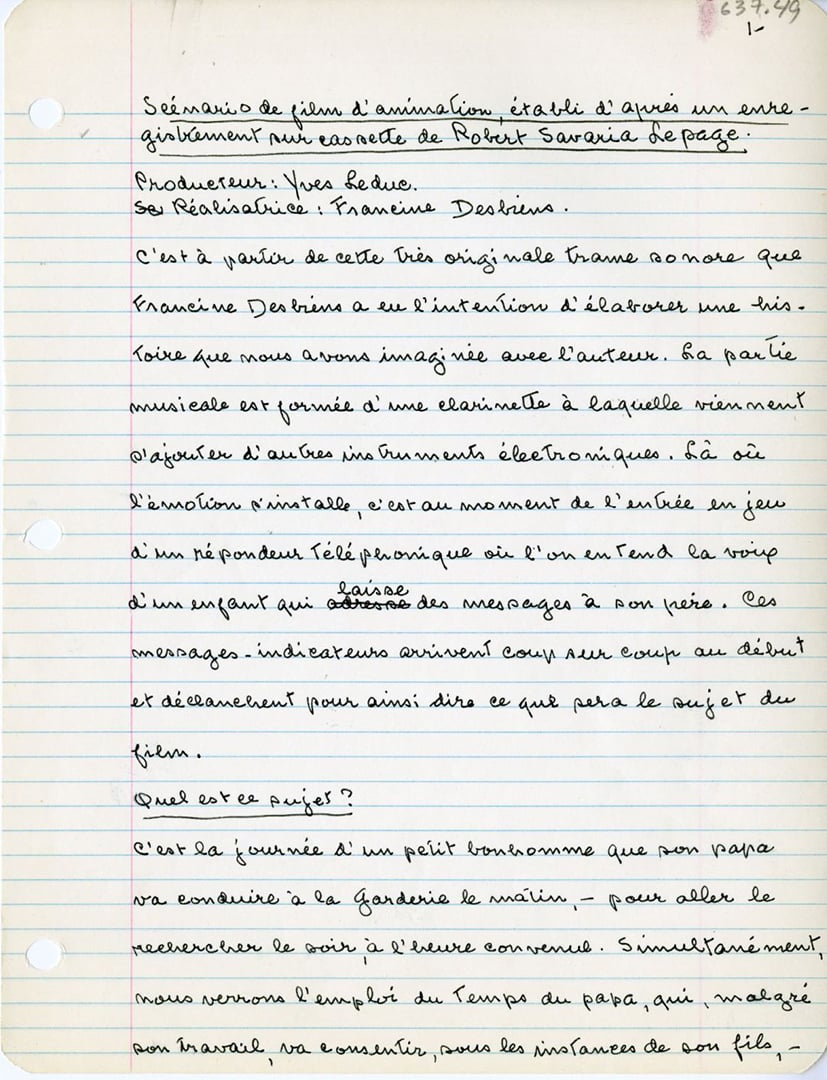 637.49
1-
Scénario de film d'animation, établi d'après un enre-
gistrement sur cassette de Robert Savaria Lepage.
Producteur: Yves Leduc.
Se Réalisatrice: Francine Desbiens.
C'est à partir de cette très originale trame sonore que
Francine Desbiens a eu l'intention d'élaborer une his-
toire que nous avons imaginée avec l'auteur. La partie
musicale est formée d'une clarinette à laquelle viennent
s'ajouter d'autres instruments électroniques. Là où
l'émotion s'installe, c'est au moment de l'entrée en jeu
d'un répondeur téléphonique où l'on entend la voix
laisse
d'un enfant qui adresse des messages à son père. Ces
messages-indicateurs arrivent coup sur coup au début
et déclanchent pour ainsi dire ce que sera le sujet du
film.
Quel est ce sujet?
C'est la journée d'un petit bonhomme que son papa
va conduire à la garderie le matin, - pour aller le
rechercher le soir, à l'heure convenue. Simultanément,
nous verrons l'emploi du temps du papa, qui, malgré
son travail, va consentir, sous les instances de son fils, -